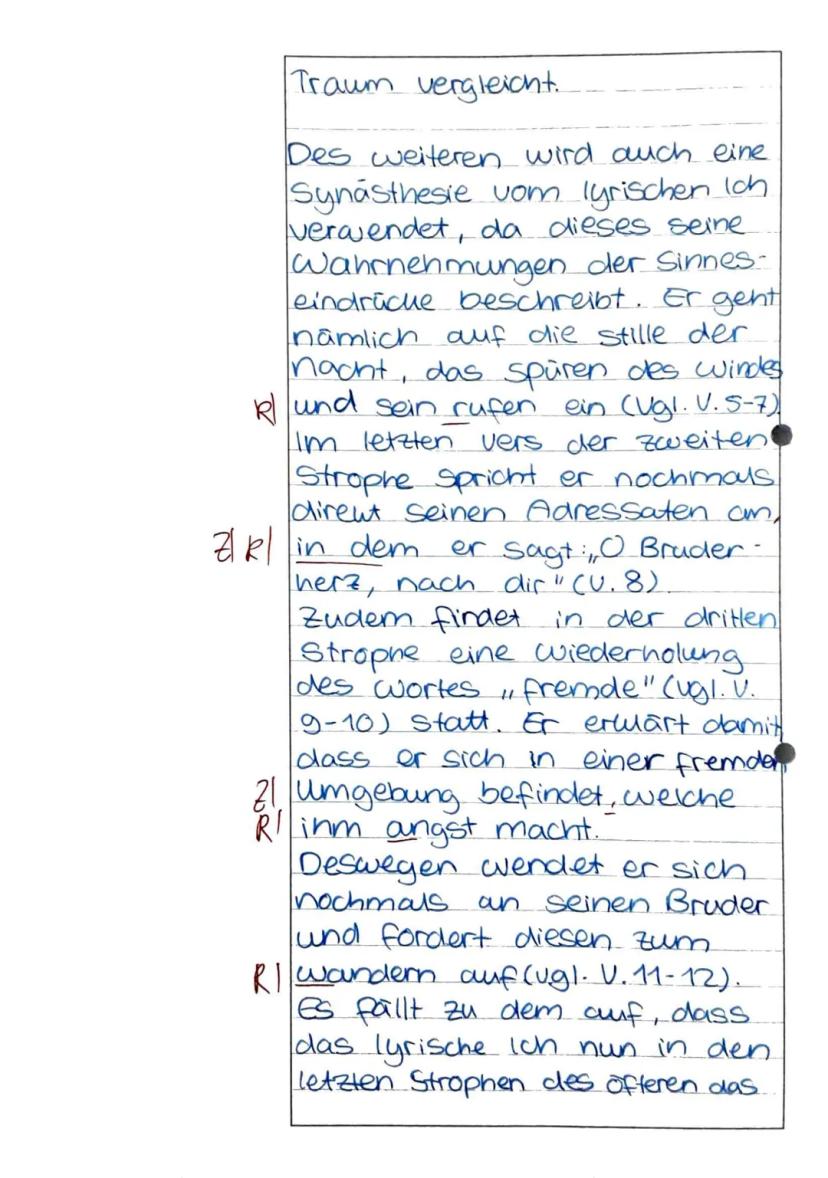 Traum vergleicht.
Des weiteren wird auch eine
Synästhesie vom lyrischen Ich
verwendet, da dieses seine
Wahrnehmungen der Sinnes-
eindrücke beschreibt. Er geht
nämlich auf die stille der
nacht, das spüren des windes
R| und sein rufen ein (Vgl. V. 5-7)
Im letzten vers der zweiten
Strophe spricht er nochmals
direkt seinen Adressaten an,
Z| R| in dem er sagt: „O Bruder-
herz, nach dir" (V. 8)
Zudem findet in der dritten
Strophe eine wiederholung
des wortes „fremde" (vgl. V.
9-10) statt. Er erklärt damit
dass er sich in einer fremden
Z| Umgebung befindet, welche
R| ihm angst macht.
Deswegen wendet er sich
nochmals an seinen Bruder
und fordert diesen zum
R| wandern auf (vgl. V. 11-12).
Es fällt zu dem auf, dass
das lyrische Ich nun in den
letzten Strophen des öfteren das